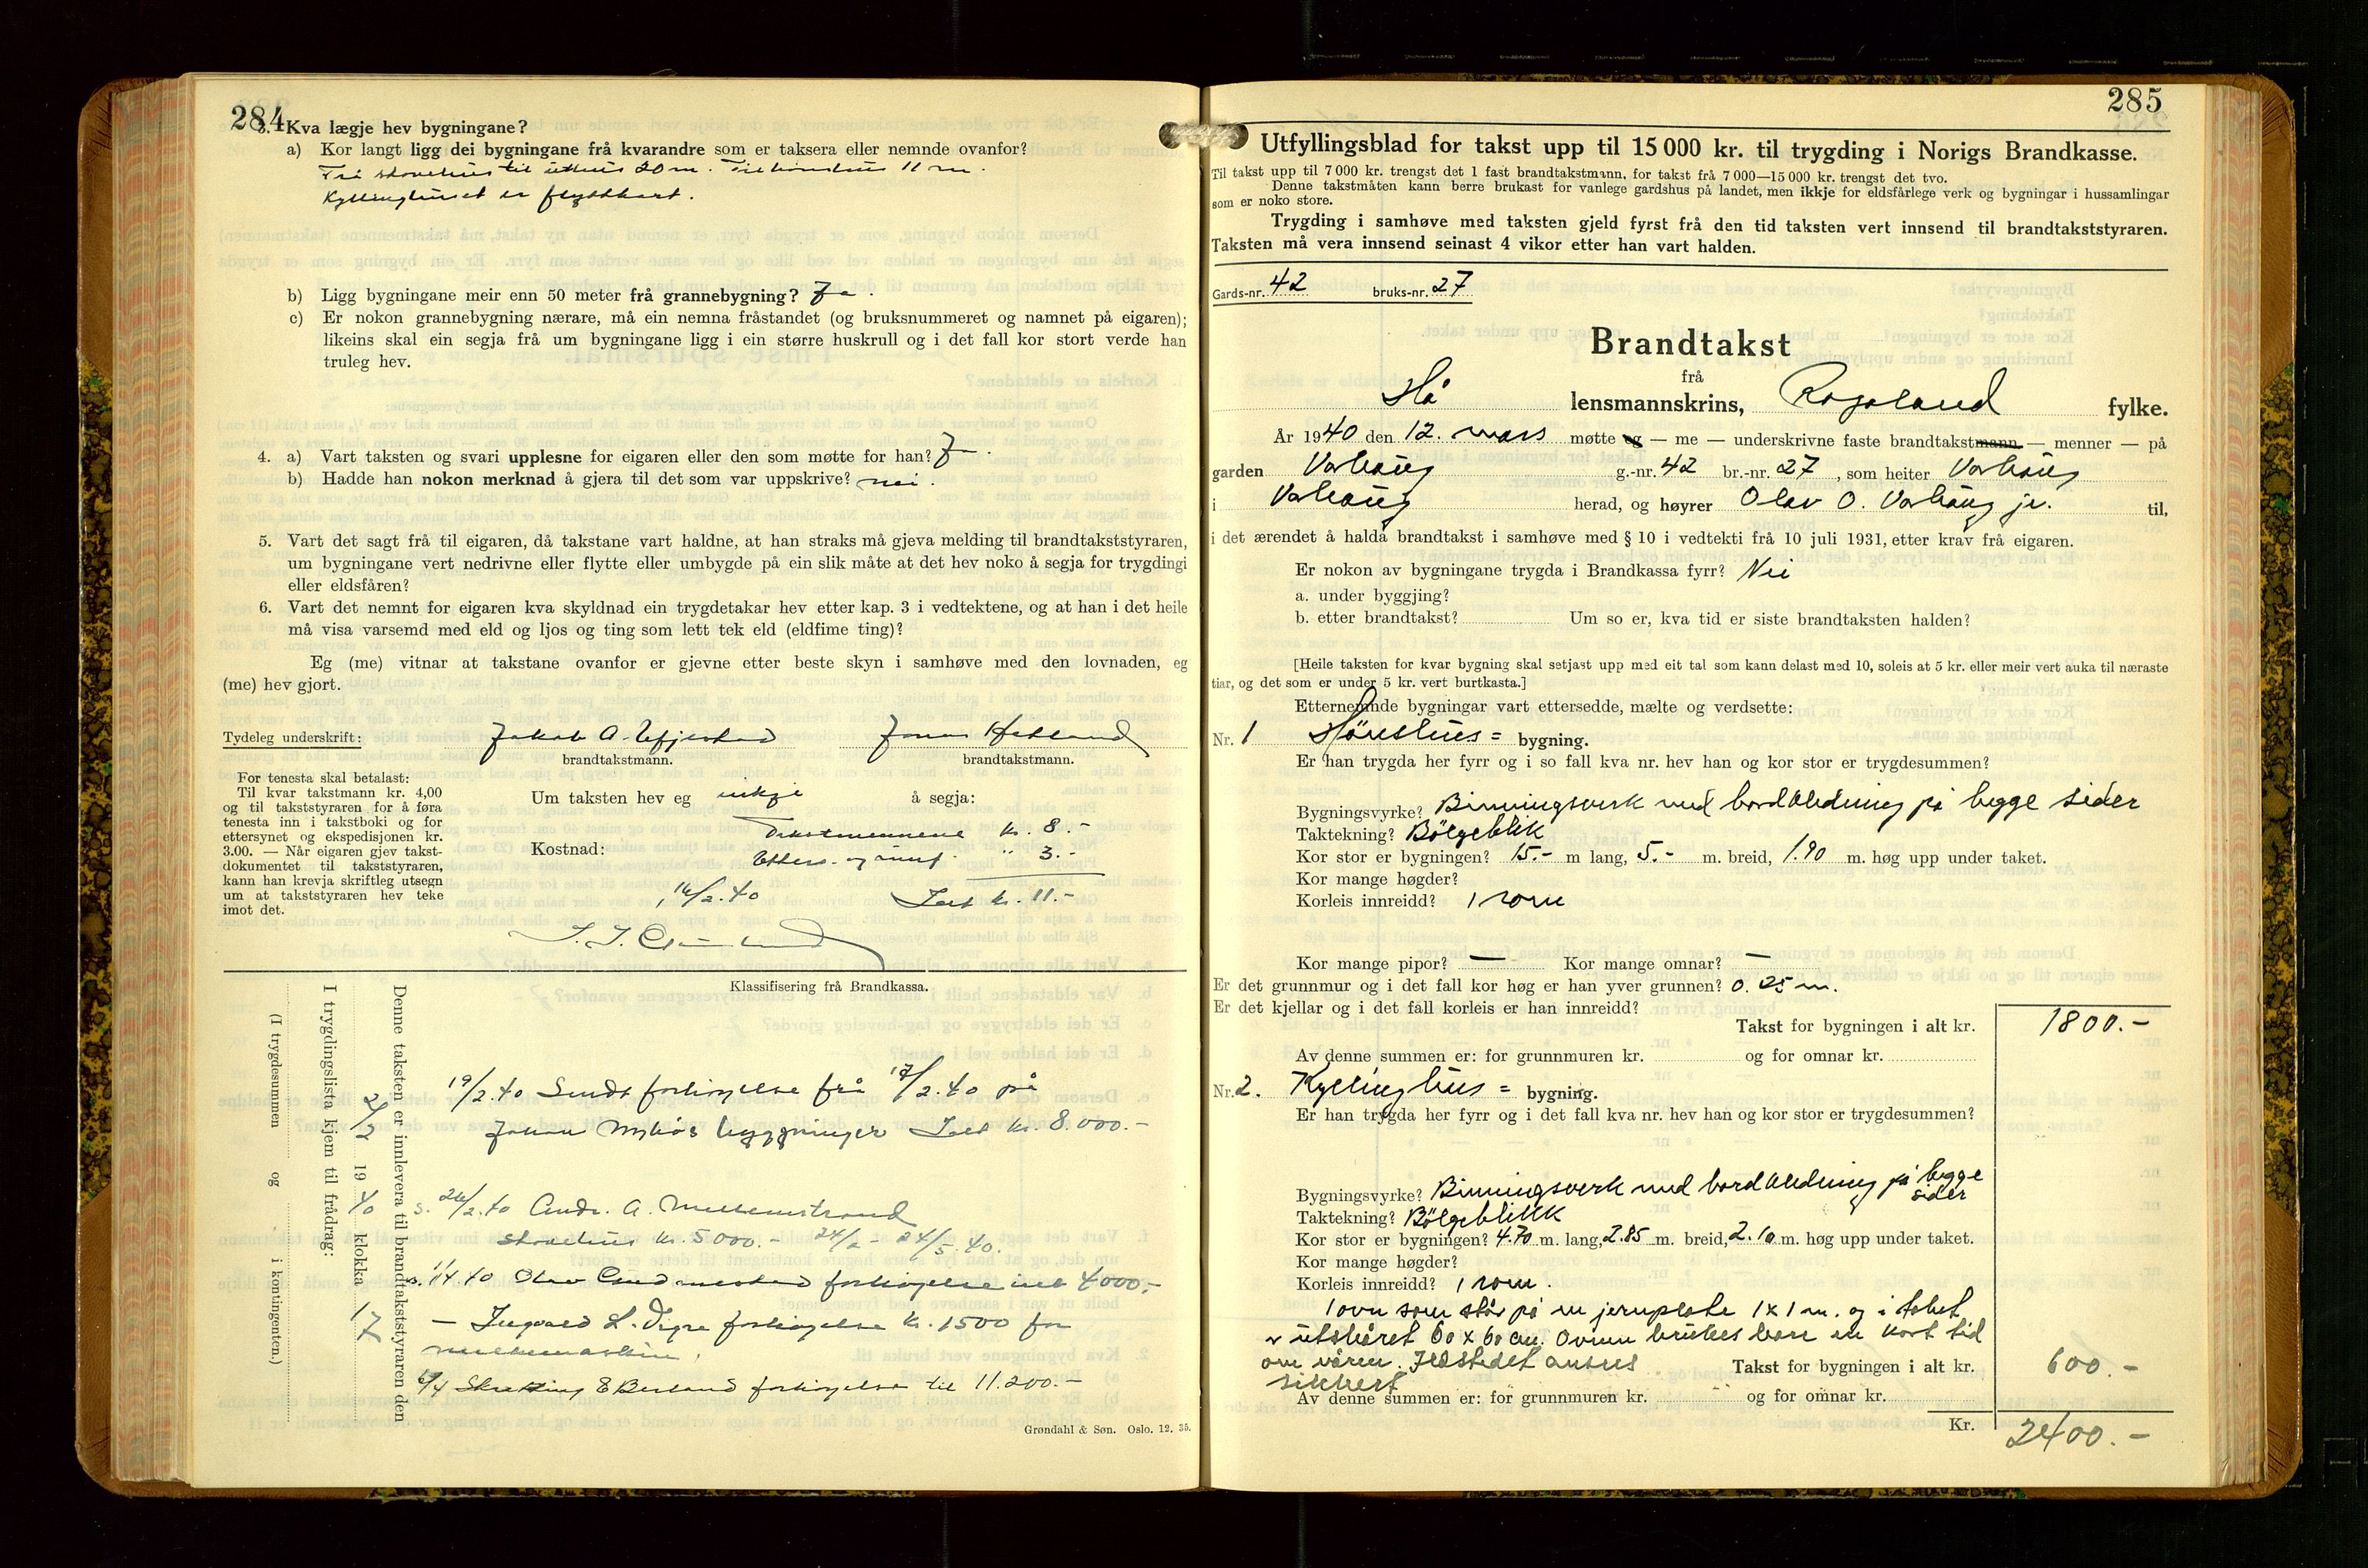 284
3. Kva lægje hev bygningane?
a) Kor langt ligg dei bygningane frå kvarandre som er taksera eller nemnde ovanfor?
Frå stovehus til uthus 20 m. Til hønehus 11 m.
Kyllinghuset er flyttbart.
b) Ligg bygningane meir enn 50 meter frå grannebygning? Ja.
c) Er nokon grannebygning nærare, må ein nemna fråstandet (og bruksnummeret og namnet på eigaren);
likeins skal ein segja frå um bygningane ligg i ein større huskrull og i det fall kor stort verde han
truleg hev.
4. a) Vart taksten og svari upplesne for eigaren eller den som møtte for han? Ja.
b) Hadde han nokon merknad å gjera til det som var uppskrive? nei.
5. Vart det sagt frå til eigaren, då takstane vart haldne, at han straks må gjeva melding til brandtakststyraren,
um bygningane vert nedrivne eller flytte eller umbygde på ein slik måte at det hev noko å segja for trygdingi
eller eldsfåren?
6. Vart det nemnt for eigaren kva skyldnad ein trygdetakar hev etter kap. 3 i vedtektene, og at han i det heile
må visa varsemd med eld og ljos og ting som lett tek eld (eldfime ting)?
Eg (me) vitnar at takstane ovanfor er gjevne etter beste skyn i samhøve med den lovnaden, eg
(me) hev gjort.
Tydeleg underskrift: Jakob A. Jonas
brandtakstmann. brandtakstmann.
For tenesta skal betalast:
Til kvar takstmann kr. 4,00
og til takststyraren for å føra
tenesta inn i takstboki og for
ettersynet og ekspedisjonen kr.
3.00. — Når eigaren gjev takst-
dokumentet til takststyraren,
kann han krevja skriftleg utsegn
um at takststyraren hev teke
imot det.
Um taksten hev eg inkje å segja:
Kostnad: Takstmennene kr. 8.-
Etters. og innf. " 3.-
16/2.40 Ialt kr. 11.-
Klassifisering frå Brandkassa.
Denne taksten er innlevera til brandtakststyraren den
2/2 1940 klokka 17
I trygdingslista kjem til frådrag:
(I trygdesummen og i kontingenten.)
19/2.40 Sendt forhøyelse frå 17/2.40 på
Johan bygginger Ialt kr. 8.000.-
s. 26/2.40 Andr. A. Mellemstrand
stovehus kr. 5000.- 24/2 - 24/5.40.
s. 1/4.40 Olav forhøyelse 4000.-
— Ingvald L. Vigre forhøyelse kr. 1500 for
melkemaskin.
forhøyelse til 11.200.-
Grøndahl & Søn. Oslo. 12. 35.
285
Utfyllingsblad for takst upp til 15 000 kr. til trygding i Norigs Brandkasse.
Til takst upp til 7 000 kr. trengst det 1 fast brandtakstmann, for takst frå 7 000—15 000 kr. trengst det tvo.
Denne takstmåten kann berre brukast for vanlege gardshus på landet, men ikkje for eldsfårlege verk og bygningar i hussamlingar
som er noko store.
Trygding i samhøve med taksten gjeld fyrst frå den tid taksten vert innsend til brandtakststyraren.
Taksten må vera innsend seinast 4 vikor etter han vart halden.
Gards-nr. 42 bruks-nr. 27
Brandtakst
frå
Hå lensmannskrins, Rogaland fylke.
År 1940 den 12. mars møtte eg — me — underskrivne faste brandtakstmann — menner — på
garden Varhaug g.-nr. 42 br.-nr. 27, som heiter Varhaug
i Varhaug herad, og høyrer Olav O. Varhaug jr. til,
i det ærendet å halda brandtakst i samhøve med § 10 i vedtekti frå 10 juli 1931, etter krav frå eigaren.
Er nokon av bygningane trygda i Brandkassa fyrr? Nei
a. under byggjing?
b. etter brandtakst? Um so er, kva tid er siste brandtaksten halden?
[Heile taksten for kvar bygning skal setjast upp med eit tal som kann delast med 10, soleis at 5 kr. eller meir vert auka til næraste
tiar, og det som er under 5 kr. vert burtkasta.]
Etternemnde bygningar vart ettersedde, mælte og verdsette:
Nr. 1 Hønshus= bygning.
Er han trygda her fyrr og i so fall kva nr. hev han og kor stor er trygdesummen?
Bygningsvyrke? Binningsverk med bordkledning på begge sider
Taktekning? Bølgeblik
Kor stor er bygningen? 15.- m lang, 5.- m. breid, 1.90 m. høg upp under taket.
Kor mange høgder?
Korleis innreidd? 1 rom
Kor mange pipor? — Kor mange omnar? —
Er det grunnmur og i det fall kor høg er han yver grunnen? 0.25 m.
Er det kjellar og i det fall korleis er han innreidd?
Takst for bygningen i alt kr. 1800.-
Av denne summen er: for grunnmuren kr. og for omnar kr.
Nr. 2. Kyllinghus= bygning.
Er han trygda her fyrr og i det fall kva nr. hev han og kor stor er trygdesummen?
Bygningsvyrke? Binningsverk med bordkledning på begge
sider
Taktekning? Bølgeblikk
Kor stor er bygningen? 4.70 m. lang, 2.85 m. breid, 2.10 m. høg upp under taket.
Kor mange høgder?
Korleis innreidd? 1 rom.
1 ovn som står på en jernplate 1 x 1 m. og i taket
er utskåret 60 x 60 cm. Ovnen brukes bare en kort tid
om våren. Ildstedet anses Takst for bygningen i alt kr. 600.-
sikkert
Av denne summen er: for grunnmuren kr. og for omnar kr.
Kr. 2400.-